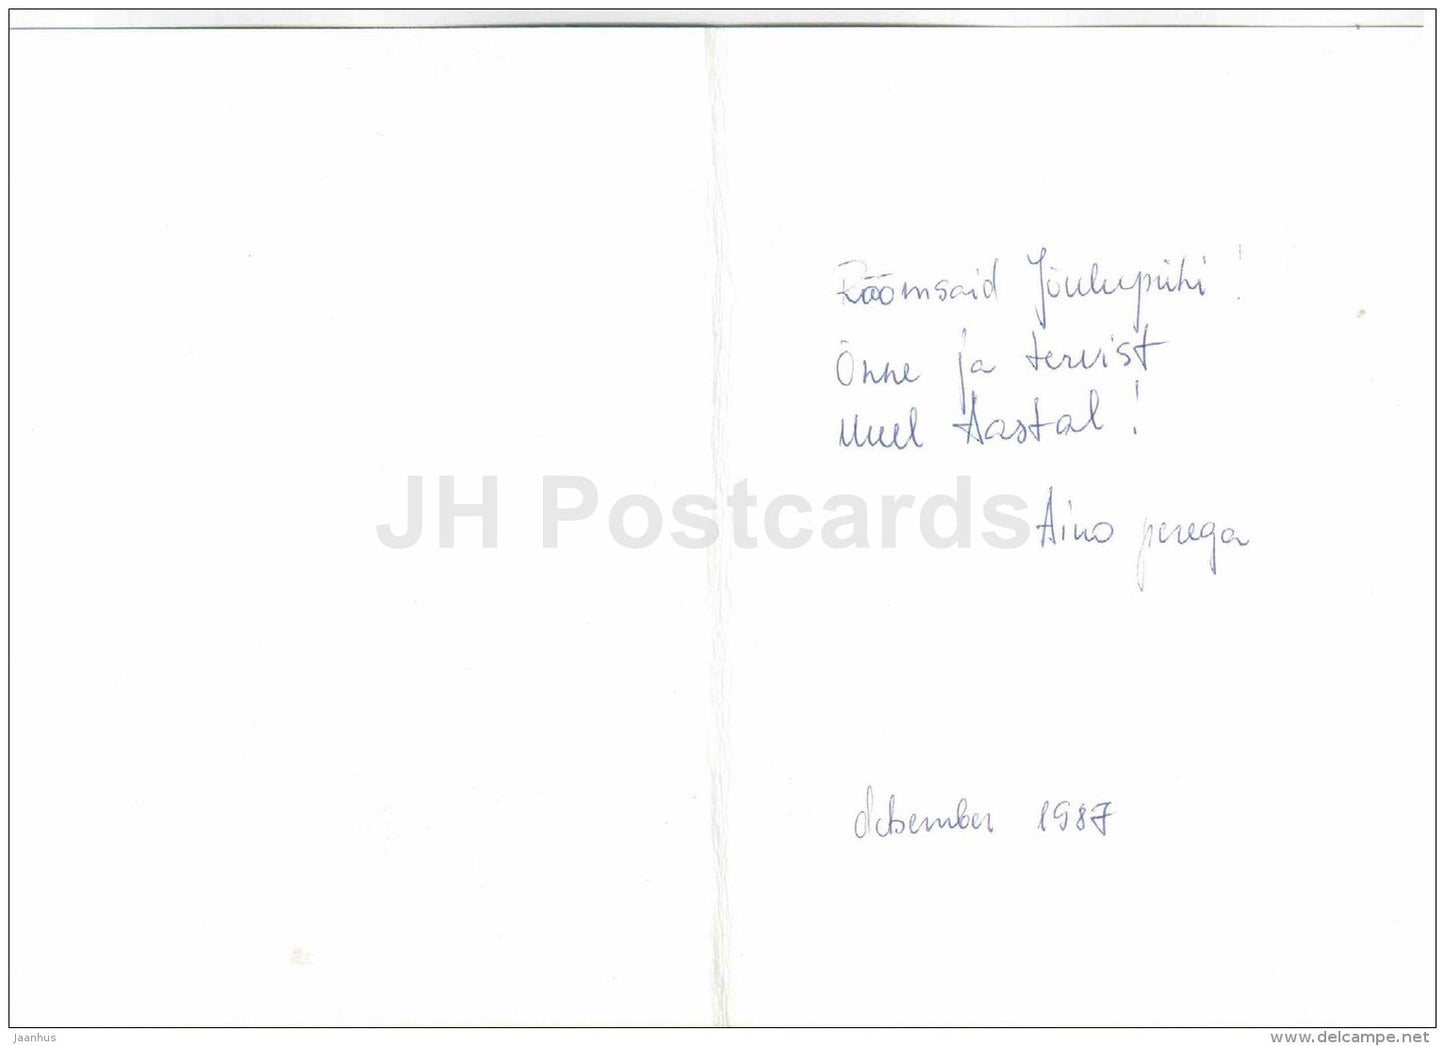 Rõõmsaid Jõulupühi !
Õnne ja tervist
Uuel Aastal !
JH Postcards
Aino perega
detsember 1987
jaanhus
www.delcampe.net